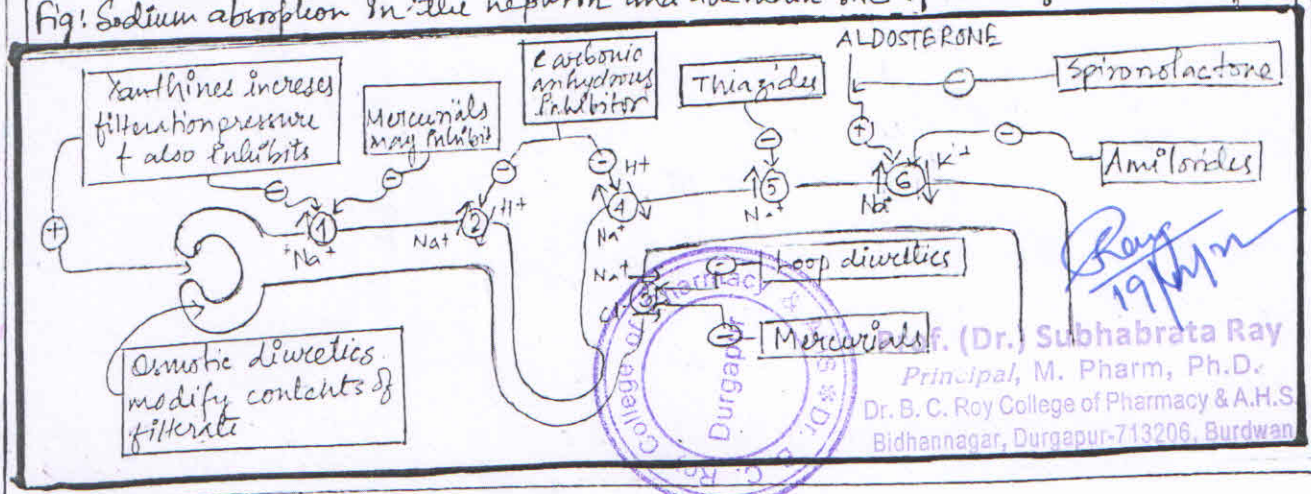 Fig: Sodium absorption in the nephron and
ALDOSTERONE
Xanthines increses
filteration pressure
+ also inhibits
Mercurials
may inhibit
Carbonic
anhydrous
inhibitor
Thiazides
Spironolactone
Amilorides
1
Na+
Na+
2
H+
4
H+
Na+
5
Na+
6
Na+
K+
Na+
3
Cl-
Loop diuretics
Mercurials
Osmotic diuretics
modify contents of
filtrate
Prof. (Dr.) Subhabrata Ray
Principal, M. Pharm, Ph.D.
Dr. B. C. Roy College of Pharmacy & A.H.S.
Bidhannagar, Durgapur-713206, Burdwan
Dr. B. C. Roy College of Pharmacy & AHS
Durgapur